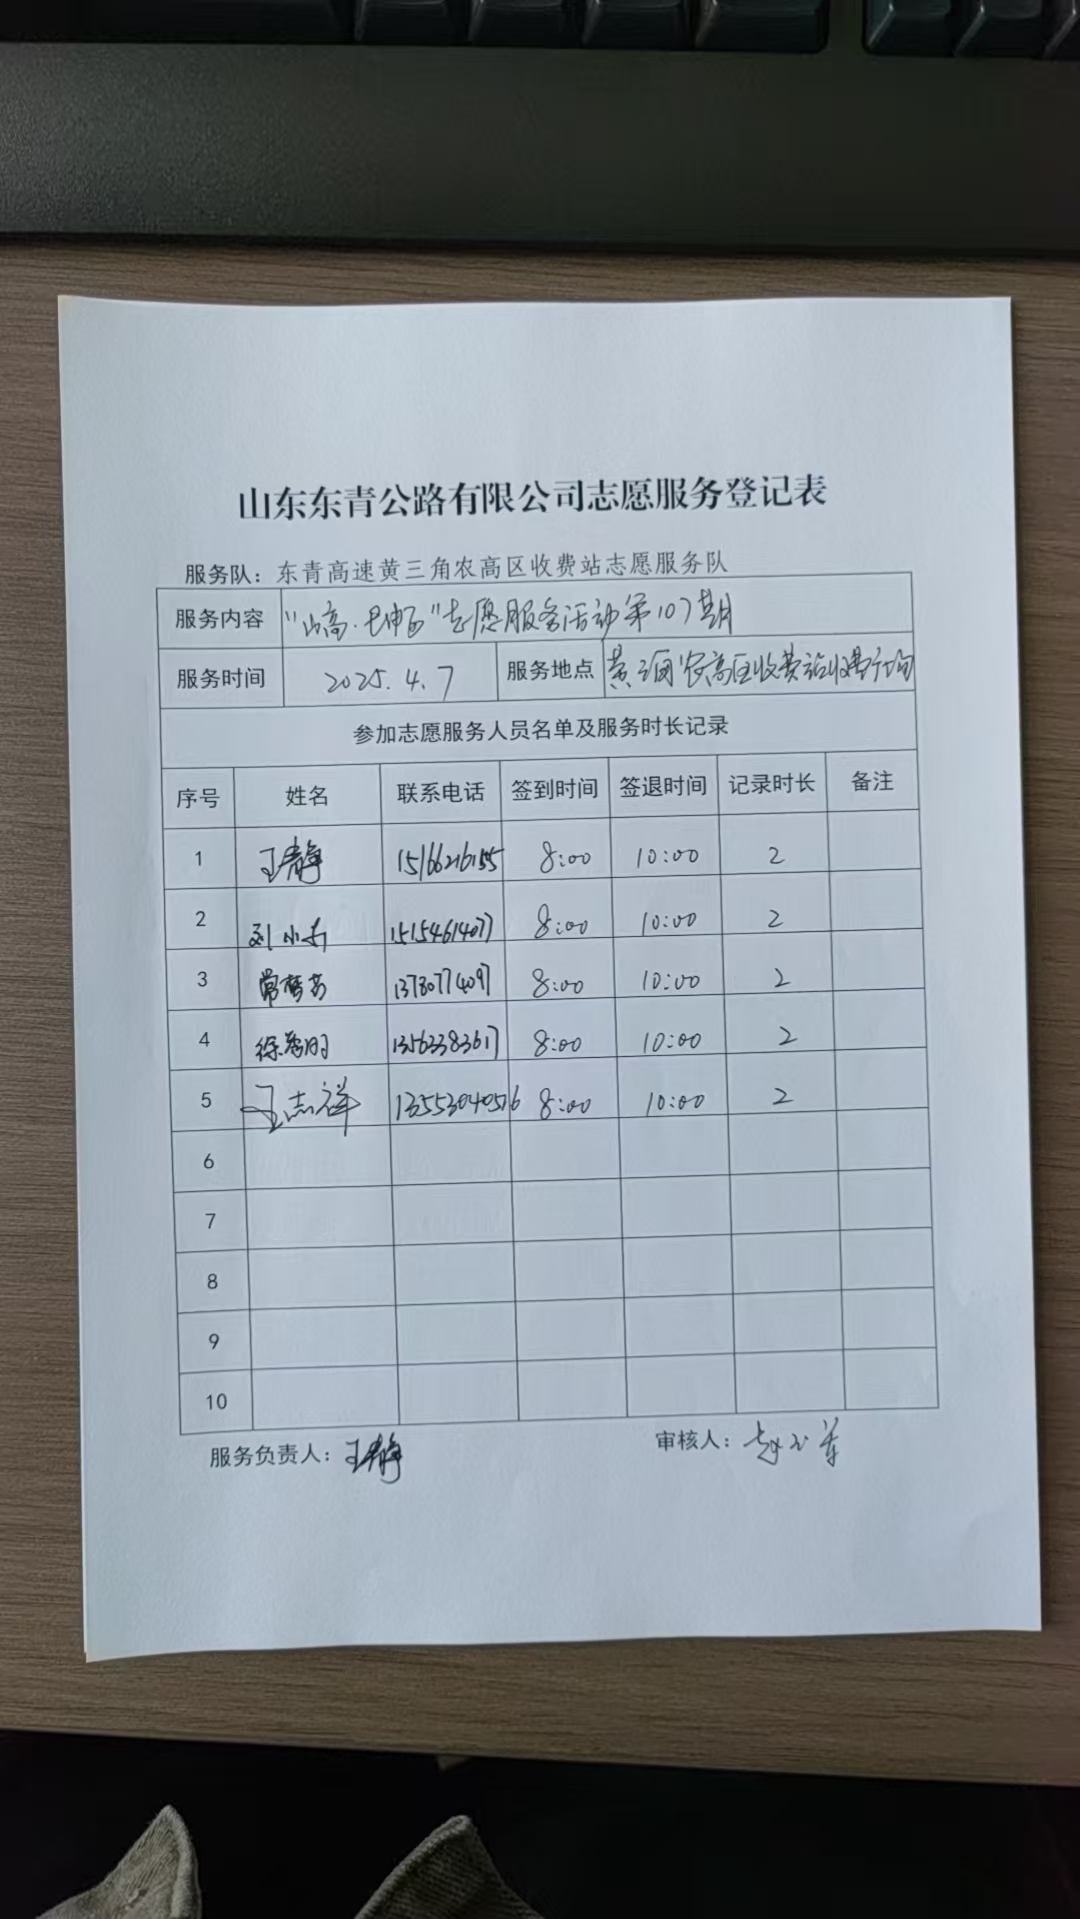 山东东青公路有限公司志愿服务登记表
服务队：东青高速黄三角农高区收费站志愿服务队
服务内容 志愿服务活动第107期
服务时间 2025.4.7 服务地点 农高区收费站收费广场
参加志愿服务人员名单及服务时长记录
序号 姓名 联系电话 签到时间 签退时间 记录时长 备注
1 王静 15166216155 8:00 10:00 2
2 刘小 15154614077 8:00 10:00 2
3 常梦 13780774097 8:00 10:00 2
4 徐秀明 13563383617 8:00 10:00 2
5 王志祥 13553040516 8:00 10:00 2
6
7
8
9
10
服务负责人：王静 审核人：赵